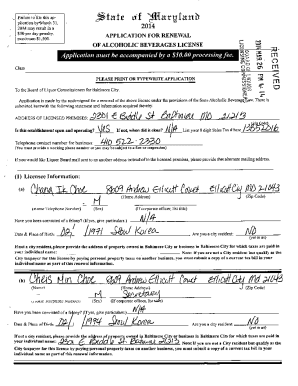 Failure to file this ap-
plication by March 31,
2014 may result in a
$50 per day penalty
maximum $1,500.
State of Maryland
2014
APPLICATION FOR RENEWAL
OF ALCOHOLIC BEVERAGES LICENSE
Application must be accompanied by a $50.00 processing fee.
RECEIVED
2014 MAR 26 PM 4:14
Class
PLEASE PRINT OR TYPEWRITE APPLICATION
To the Board of Liquor License Commissioners for Baltimore City.
Application is made by the undersigned for a renewal of the above license under the provisions of the State Alcoholic Beverages Law. There is
submitted herewith the following statements and information required thereby
ADDRESS OF LICENSED PREMISES: 2301 E Biddle St Baltimore MD 21213
Is this establishment open and operating? YES If not, when did it close? N/A List your 8 digit Sales Tax # here 13552216
Telephone contact number for business 410 522-2330
(You must provide a working phone number or you may be subject to a fine or suspension)
If you would like Liquor Board mail sent to an address other than the licensed premises, please provide that alternate mailing address.
(1) License Information:
(a) Chong Ik Choe 8209 Andrew Ellicott Court Ellicott City MD 21043
(Home Address) (Zip Code)
M
(Home Telephone Number) (Sex) (If corporate officer, list title)
Have you been convicted of a felony? (If yes, give particulars.) N/A
Date & Place of Birth 1971 Seoul Korea Are you a city resident NO
(yes or no)
If not a city resident, provide the address of property owned in Baltimore City or business in Baltimore City for which taxes are paid in
your individual name
(b) Chris Min Choe Andrew Ellicott Court Ellicott City Md 21043
(Home Address) (Zip Code)
M Secretary
(Sex) (If corporate officer, list title)
Have you been convicted of a felony? (If yes, give particulars) N/A
Date & Place of Birth Seoul Korea Are you a city resident NO
(yes or no)
If not a city resident, provide the address of property owned in Baltimore City or business in Baltimore City for which taxes are paid in
your individual name: E Biddle St Baltimore 21213
City taxpayer for this license by paying personal property taxes on another business, you must submit a copy of a current tax bill in your
individual name as part of this renewal information.